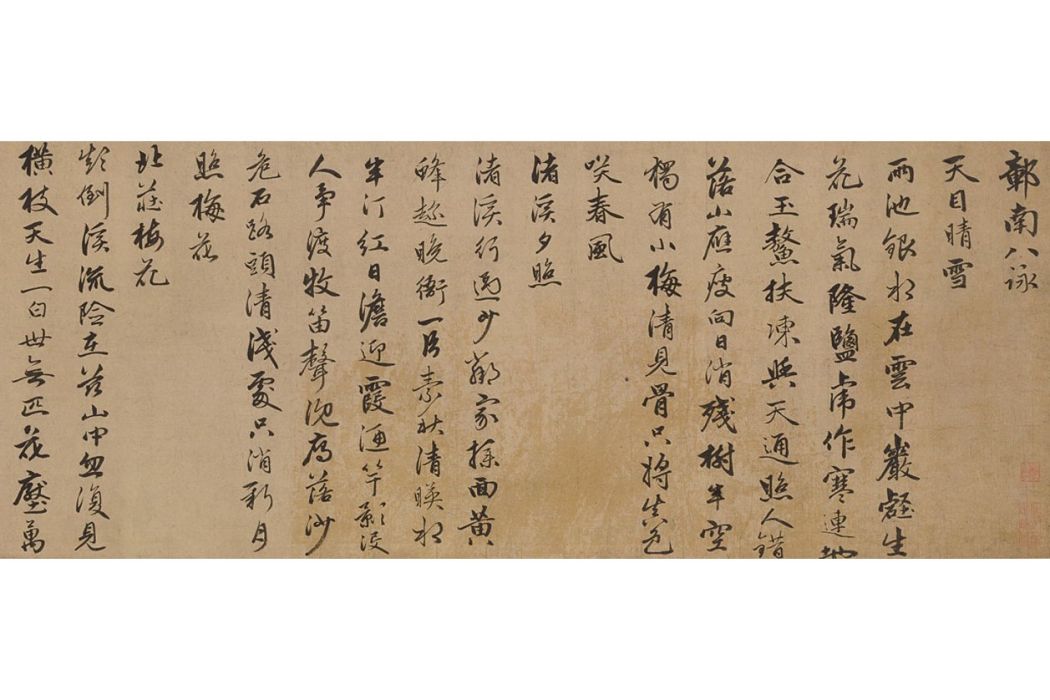 鄣南八詠
天目晴雪
兩池銀水在雲中巖壑生
花瑞氣隆鹽虎作寒連地
合玉鰲扶凍與天通照人錯
落山應瘦向日消殘樹半空
獨有小梅清見骨只將生色
笑春風
渚溪夕照
渚溪行過少鄰家面黃
蜂趁晚衙一段素秋清映水
半汀紅日澹迎霞酒竿影沒
人爭渡牧笛聲鴈落沙
危石路頭清淺處只消新月
照梅花
北莊梅花
倒溪流險在茲山中忽復見
橫枝天生一白世無匹花壓萬